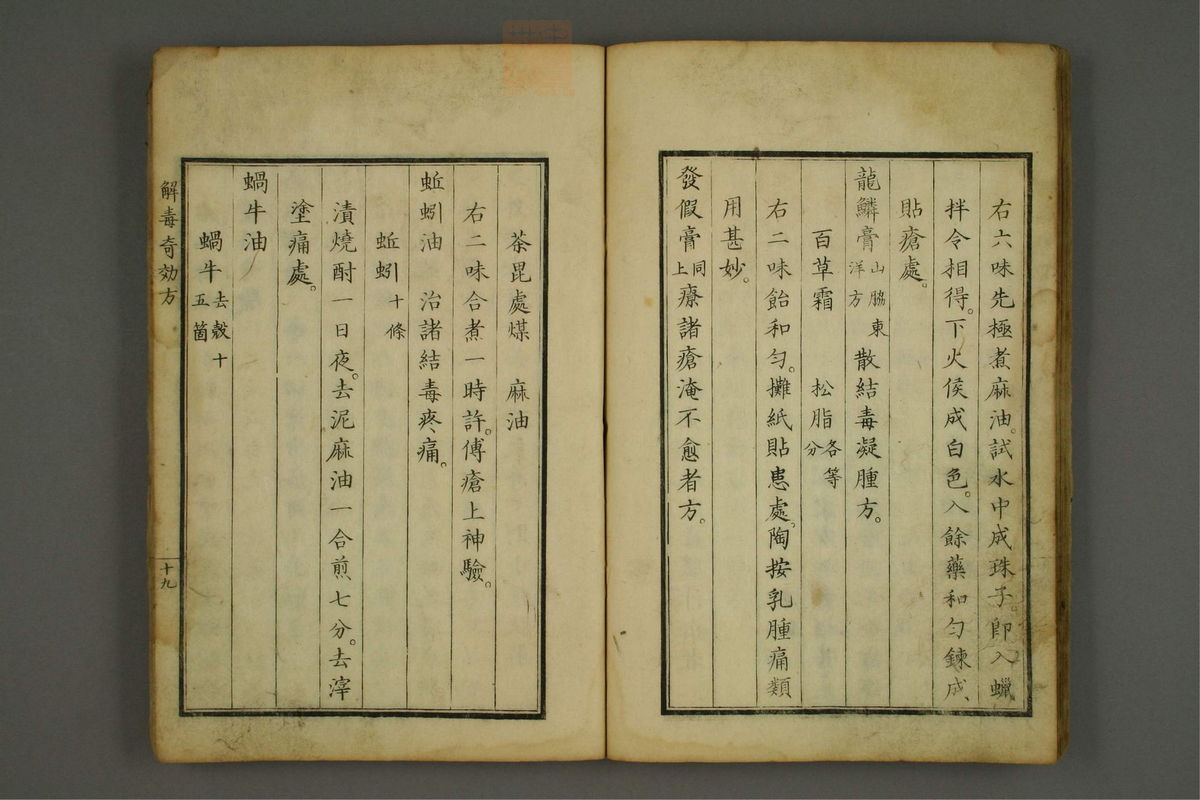 右六味先極煮麻油。試水中成珠子。即入蠟
拌令相得。下火侯成白色。入餘藥和勻鍊成、
貼瘡處。
龍鱗膏 山脇東洋方 散結毒凝腫方。
百草霜 松脂各等分
右二味飴和勻。攤紙貼患處。陶按乳腫痛類
用甚妙。
發假膏 同上 療諸瘡淹不愈者方。
荼毘處煤 麻油
右二味合煮一時許。傅瘡上神驗。
蚯蚓油 治諸結毒疼痛。
蚯蚓 十條
漬燒酎一日夜。去泥麻油一合煎七分。去滓
塗痛處。
蝸牛油
蝸牛 去殼十五箇
解毒奇効方
十九